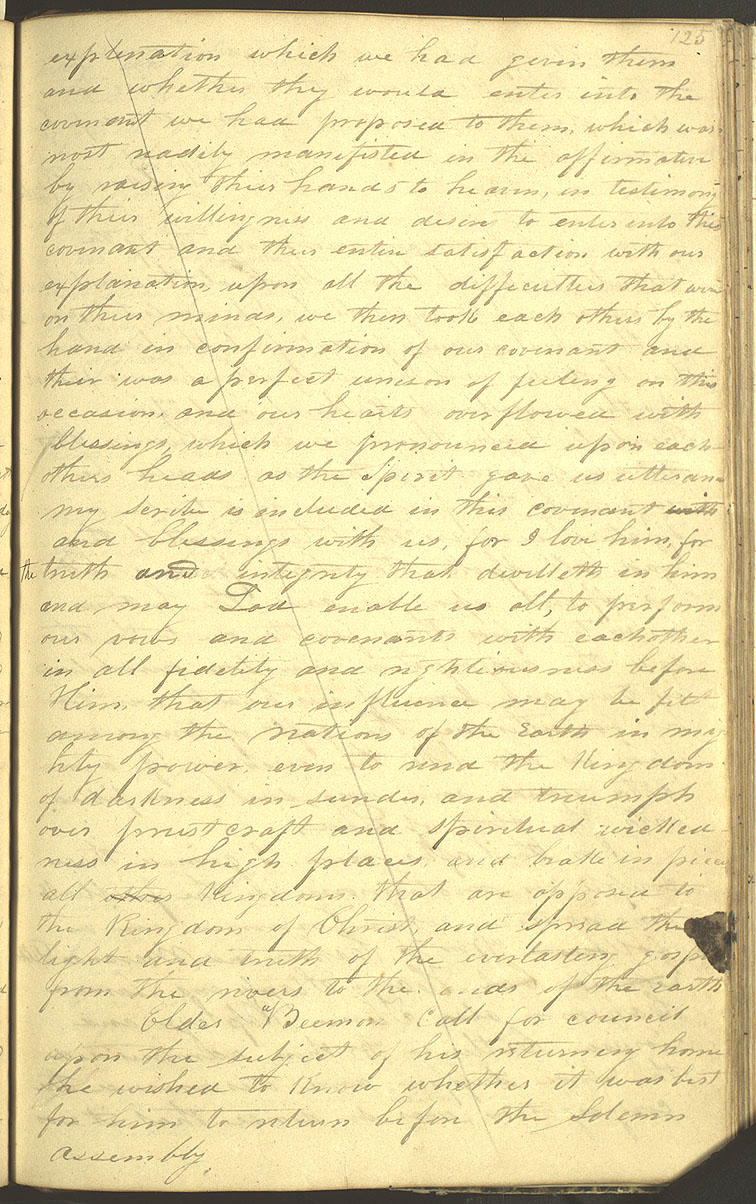 125
explenation which we had given them
and whether they would enter into the
covenant we had proposed to them, which was
most readily manifisted in the affirmative
by raising their hands to heaven, in testimony
of their willingness and desire to enter into this
covenant and their entire satisfaction with our
explanation, upon all the difficulties that were
on their minds, we then took each others by the
hand in confirmation of our covenant and
their was a perfect unison of feeling on this
occasion, and our hearts overflowed with
blessings, which we pronounced upon each
others heads as the Spirit gave us utterance
my scribe is included in this covenant with
and blessings with us, for I love him, for
the truth and integrity that dwelleth in him
and may God enable us all, to perform
our vows and covenants with each other
in all fidelity and rightiousness before
Him, that our influence may be felt
among the nations of the Earth in migh
hty power, even to rend the Kingdom
of darkness in sunder, and triumph
over priestcraft and spiritual wicked-
ness in high places, and brake in pieces
all other Kingdoms that are opposed to
the Kingdom of Christ, and spread the
light and truth of the everlasting gospel
from the rivers to the ends of the earth
Elder Beemon call for council
upon the subject of his returning home
he wished to know whether it was best
for him to return before the Solemn
assembly,